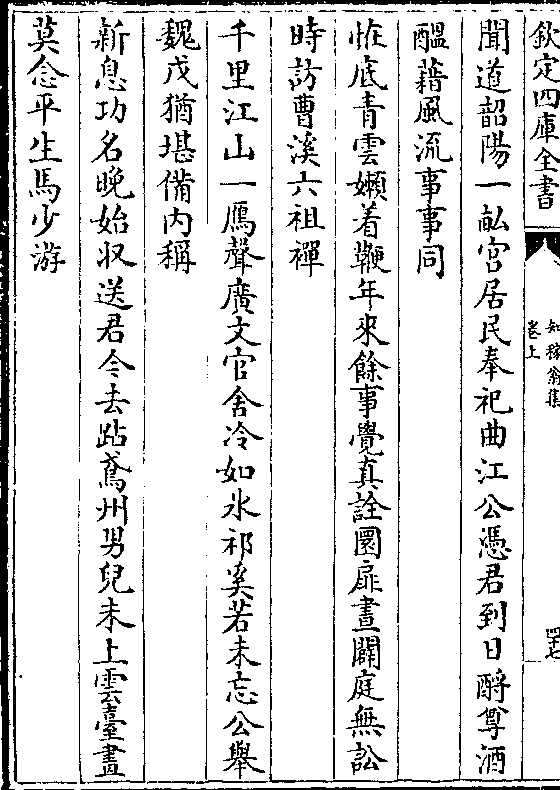 欽定四庫全書
知稼翁集
卷上
四十七
聞道韶陽一畝宫居民奉祀曲江公憑君到日酹尊酒
醖藉風流事事同
恠底青雲嬾着鞭年來餘事覺真詮圜扉晝闢庭無訟
時訪曹溪六祖禪
千里江山一鴈聲廣文官舍冷如氷祁奚若未忘公舉
魏戊猶堪備内稱
新息功名晚始収送君今去跕鳶州男兒未上雲臺畫
莫念平生馬少游